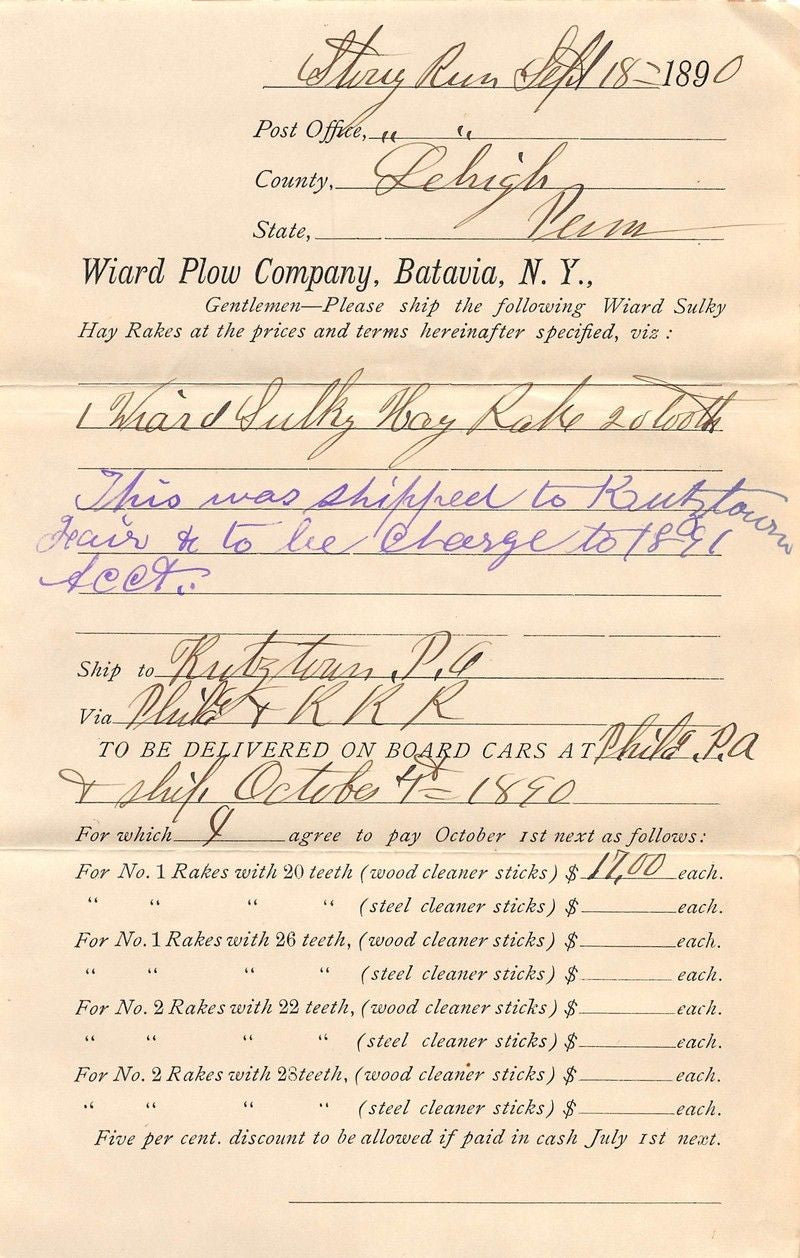 Stony Run Sept 18 = 1890
Post Office, " "
County, Lehigh
State, Penn
Wiard Plow Company, Batavia, N. Y.,
Gentlemen—Please ship the following Wiard Sulky
Hay Rakes at the prices and terms hereinafter specified, viz :
1 Wiard Sulky Hay Rake 20 tooth
This was shipped to Kutztown
Fair & to be charge to 1891
Acct.
Ship to Kutztown P.a
Via Phila & R R R
TO BE DELIVERED ON BOARD CARS AT Phila P.a
& ship October 1st = 1890
For which I agree to pay October 1st next as follows:
For No. 1 Rakes with 20 teeth (wood cleaner sticks) $ 17,00 each.
" " " " (steel cleaner sticks) $ each.
For No. 1 Rakes with 26 teeth, (wood cleaner sticks) $ each.
" " " " (steel cleaner sticks) $ each.
For No. 2 Rakes with 22 teeth, (wood cleaner sticks) $ each.
" " " " (steel cleaner sticks) $ each.
For No. 2 Rakes with 28 teeth, (wood cleaner sticks) $ each.
" " " " (steel cleaner sticks) $ each.
Five per cent. discount to be allowed if paid in cash July 1st next.